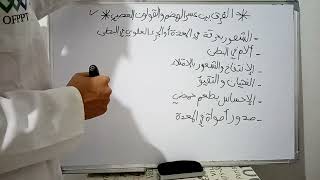 OFPPT
* الفرق بين عسر الهضم والقولون العصبي *
- الشعور بحرقة في المعدة أو الجزء العلوي في البطن
- آلام في البطن
- الإنتفاخ والشعور بالامتلاء
- الغثيان والتقيؤ
- الإحساس بطعم حمضي
- صدور أصواة في المعدة